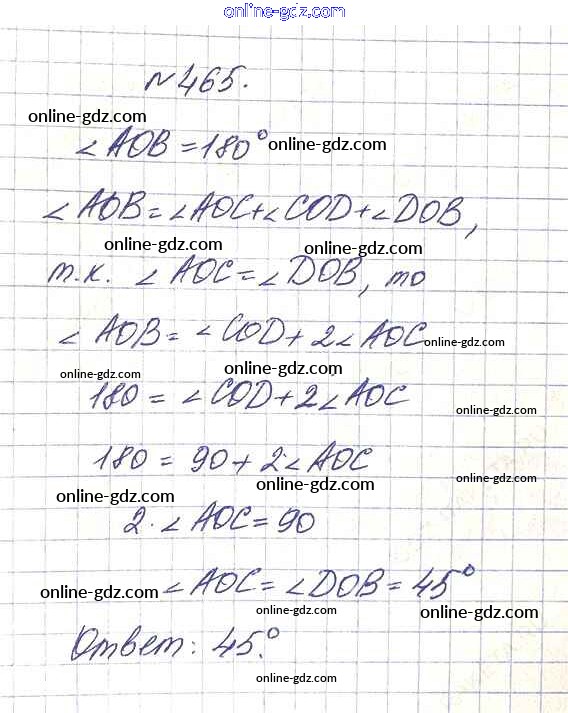 online-gdz.com
№465.
online-gdz.com
∠AOB=180° online-gdz.com
∠AOB=∠AOC+∠COD+∠DOB,
online-gdz.com online-gdz.com
т.к. ∠AOC=∠DOB, то
∠AOB=∠COD+2∠AOC online-gdz.com
online-gdz.com online-gdz.com
180=∠COD+2∠AOC online-gdz.com
180=90+2·∠AOC
online-gdz.com online-gdz.com online-gdz.com
2·∠AOC=90
online-gdz.com ∠AOC=∠DOB=45°
online-gdz.com online-gdz.com
Ответ: 45°.
online-gdz.com